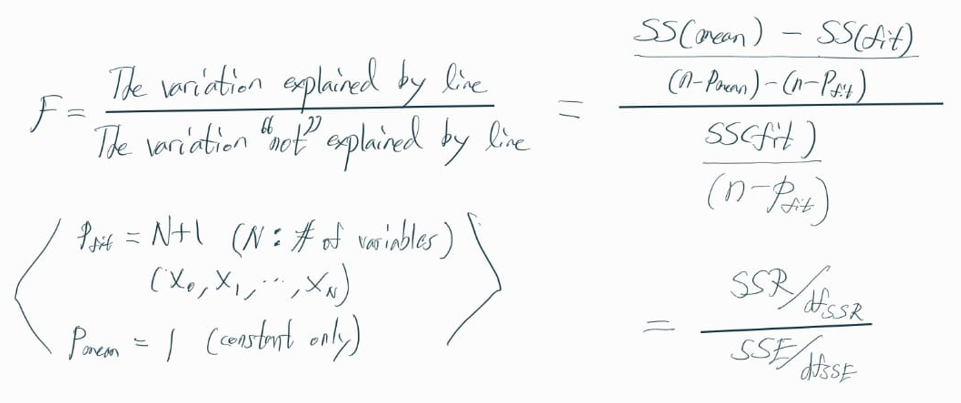 F = The variation explained by line / The variation "not" explained by line = ((SS(mean) - SS(fit)) / ((n-Pmean)-(n-Pfit))) / (SS(fit) / (n-Pfit))
Pfit = N+1 (N: # of variables)
(X0, X1, ..., XN)
Pmean = 1 (constant only)
= (SSR/dfSSR) / (SSE/dfSSE)